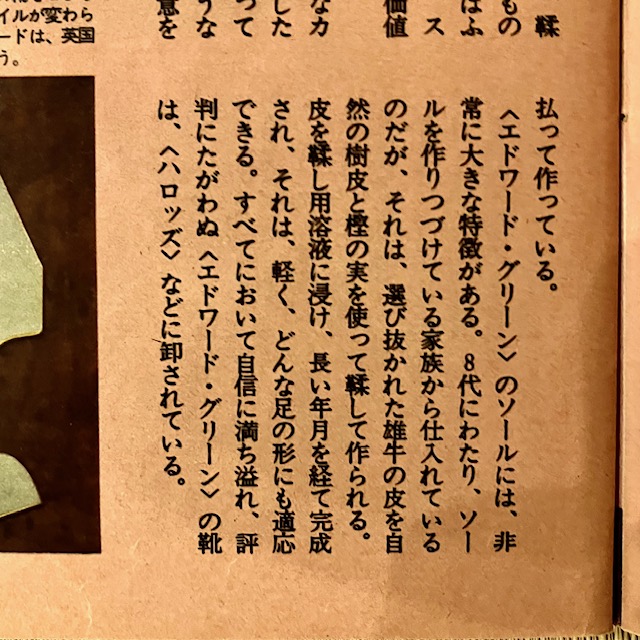 鞣
もの
はふ
ス
価値
なカ
した
って
うな
意を
イルが変わら
ードは、英国
う。
払って作っている。
〈エドワード・グリーン〉のソールには、非
常に大きな特徴がある。8代にわたり、ソー
ルを作りつづけている家族から仕入れている
のだが、それは、選び抜かれた雄牛の皮を自
然の樹皮と樫の実を使って鞣して作られる。
皮を鞣し用溶液に浸け、長い年月を経て完成
され、それは、軽く、どんな足の形にも適応
できる。すべてにおいて自信に満ち溢れ、評
判にたがわぬ〈エドワード・グリーン〉の靴
は、〈ハロッズ〉などに卸されている。